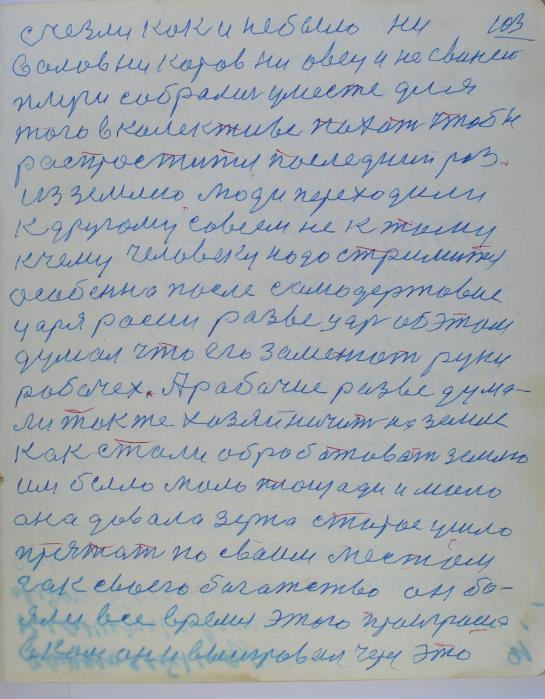 счезли как и небыло ни 103
волов ни каров ни овец и не свиней
плуги собрали уместе для
того в колективе пахат чтобы
распроститися последний раз.
из землю люди переходили
к другому совсем не к тому
к чему человеку надо стримится
особенна после самодержавие
царя расии разве цар об этом
думал что его заменют руки
рабочех. А рабочие разве дума-
ли также хозяйничит на земле
как стали обработоват землю
им было мало площади и мало
она довала зерна старое ушло
прятат по сваим местам
как своего богатство он бо-
яли все время этого
в ком он и выигровал чере это